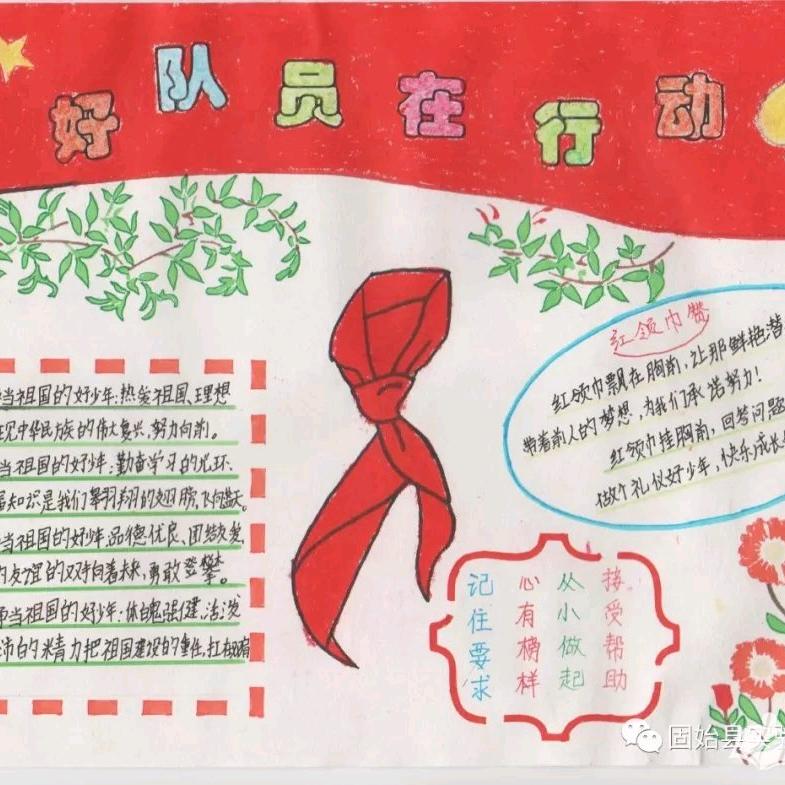 好队员在行动
当祖国的好少年:热爱祖国、理想
中华民族的伟大复兴,努力向前。
当祖国的好少年:勤奋学习的光环,
知识是我们翱翔的翅膀,飞向蓝天。
当祖国的好少年:品德优良、团结友爱,
友谊的双手向着未来,勇敢登攀。
争当祖国的好少年:体魄强健、活泼
沛的精力把祖国建设的重任,扛在肩
红领巾赞
红领巾飘在胸前,让那鲜艳
带着前人的梦想,为我们承诺努力!
红领巾挂胸前,回答问题
做个礼仪好少年,快乐成长
记住要求
心有榜样
从小做起
接受帮助
固始县